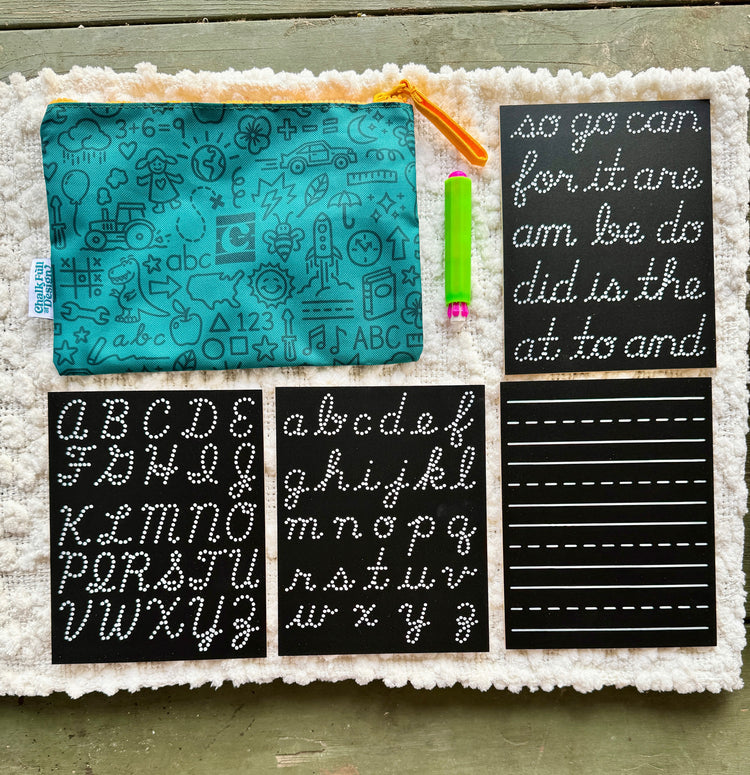 3+6=9
abc
C
abc
123
ABC
Chalk Full
of
Design!
so go can
for it are
am be do
did is the
at to and
A B C D E
F G H I J
K L M N O
P Q R S T U
V W X Y Z
a b c d e f
g h i j k l
m n o p q
r s t u v
w x y z